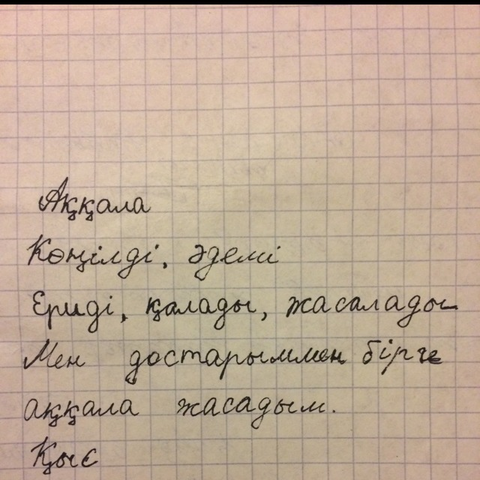 Аққала
Көңілді, әдемі
Ериді, қалады, жасалады
Мен достарыммен бірге
аққала жасадым.
Қыс